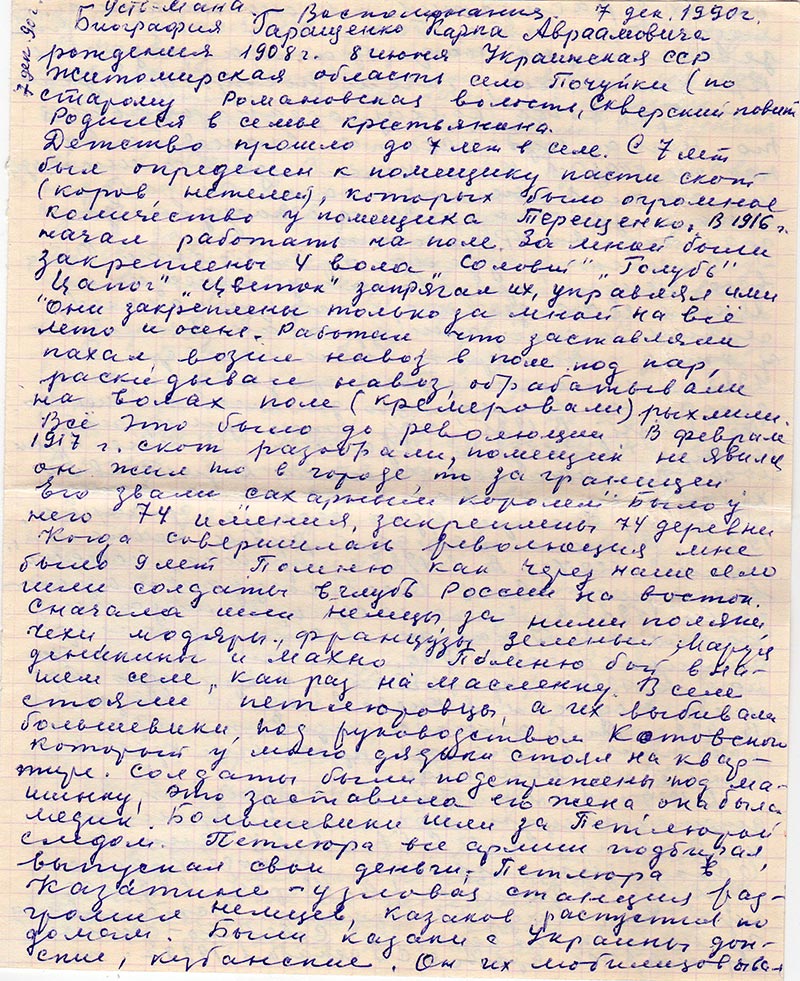 Усть-Мана Воспоминания 7 дек. 1990г.
7 дек 90г.
Биография Гаращенко Карпа Авраамовича
рождения 1908г. 8 июня Украинская ССР
Житомирская область село Почуйки (по
старому Романовская волость, Сквирский повит
Родился в семье крестьянина.
Детство прошло до 7 лет в селе. С 7 лет
был определен к помещику пасти скот
(коров нетелей), которых было огромное
количество у помещика Терещенко. В 1916 г.
начал работать на поле. За мной были
закреплены 4 вола „Соловий" „Голубь"
„Цапог" „Цветок" запрягал их, управлял ими
Они закреплены только за мной на всё
лето и осень. Работал что заставляли
пахал возил навоз в поле под пар,
раскидывали навоз, обрабатывали
на волах поле (кремеровали) рыхлили.
Всё это было до революции В феврале
1917 г. скот разобрали, помещик не явился
он жил то в городе, то за границей
Его звали сахарный король Было у
него 74 имения, закреплены 74 деревни
Когда совершилась революция мне
было 9 лет Помню как через наше село
шли солдаты вглубь России на восток.
Сначала шли немцы, за ними поляки,
чехи модяры, французы Зеленый Маруся
деникины и махно Помню бой в на-
шем селе, как раз на масленку. В селе
стояли петлюровцы, а их выбивали
большевики, под руководством Котовского
который у моего дядьки стоял на квар-
тире. Солдаты были подстрижены под ма-
шинку, это заставила его жена она была
медик. Большевики шли за Петлюрой
следом. Петлюра все армии подбирал,
выпускал свои деньги. Петлюра в
Казатине - узловая станция раз-
громил немцев, казаков распустил по
домам. Были казаки с Украины дон-
ские, кубанские. Он их мобилизовыва-